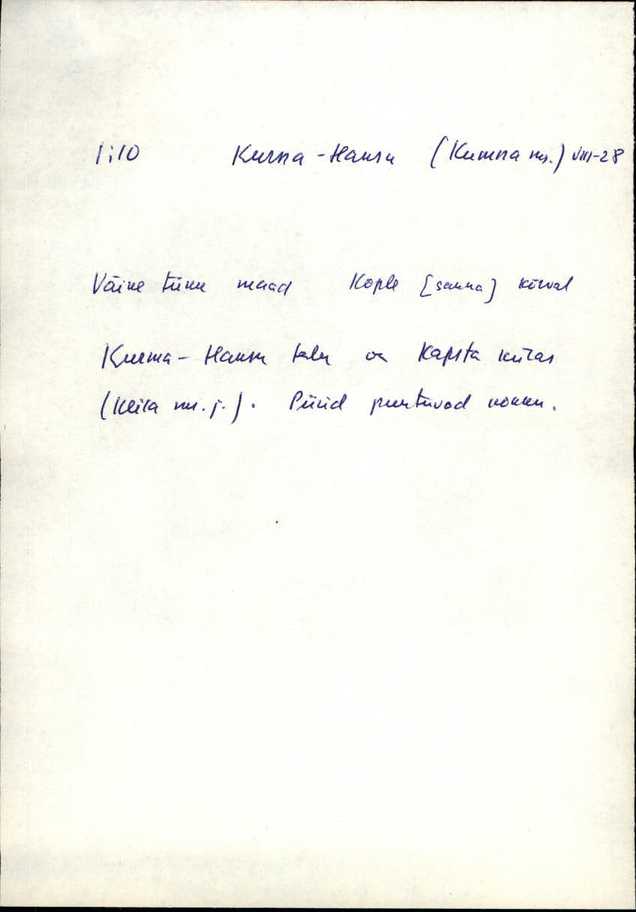 1:10 Kurna-Hansu (Kumna ms.) VIII-28
Väike tükk maad Kople [sauna] kõrval
Kurma-Hansu talu on Kapsta külas
(Keila ms. j.). Piirid puutuvad kokku.